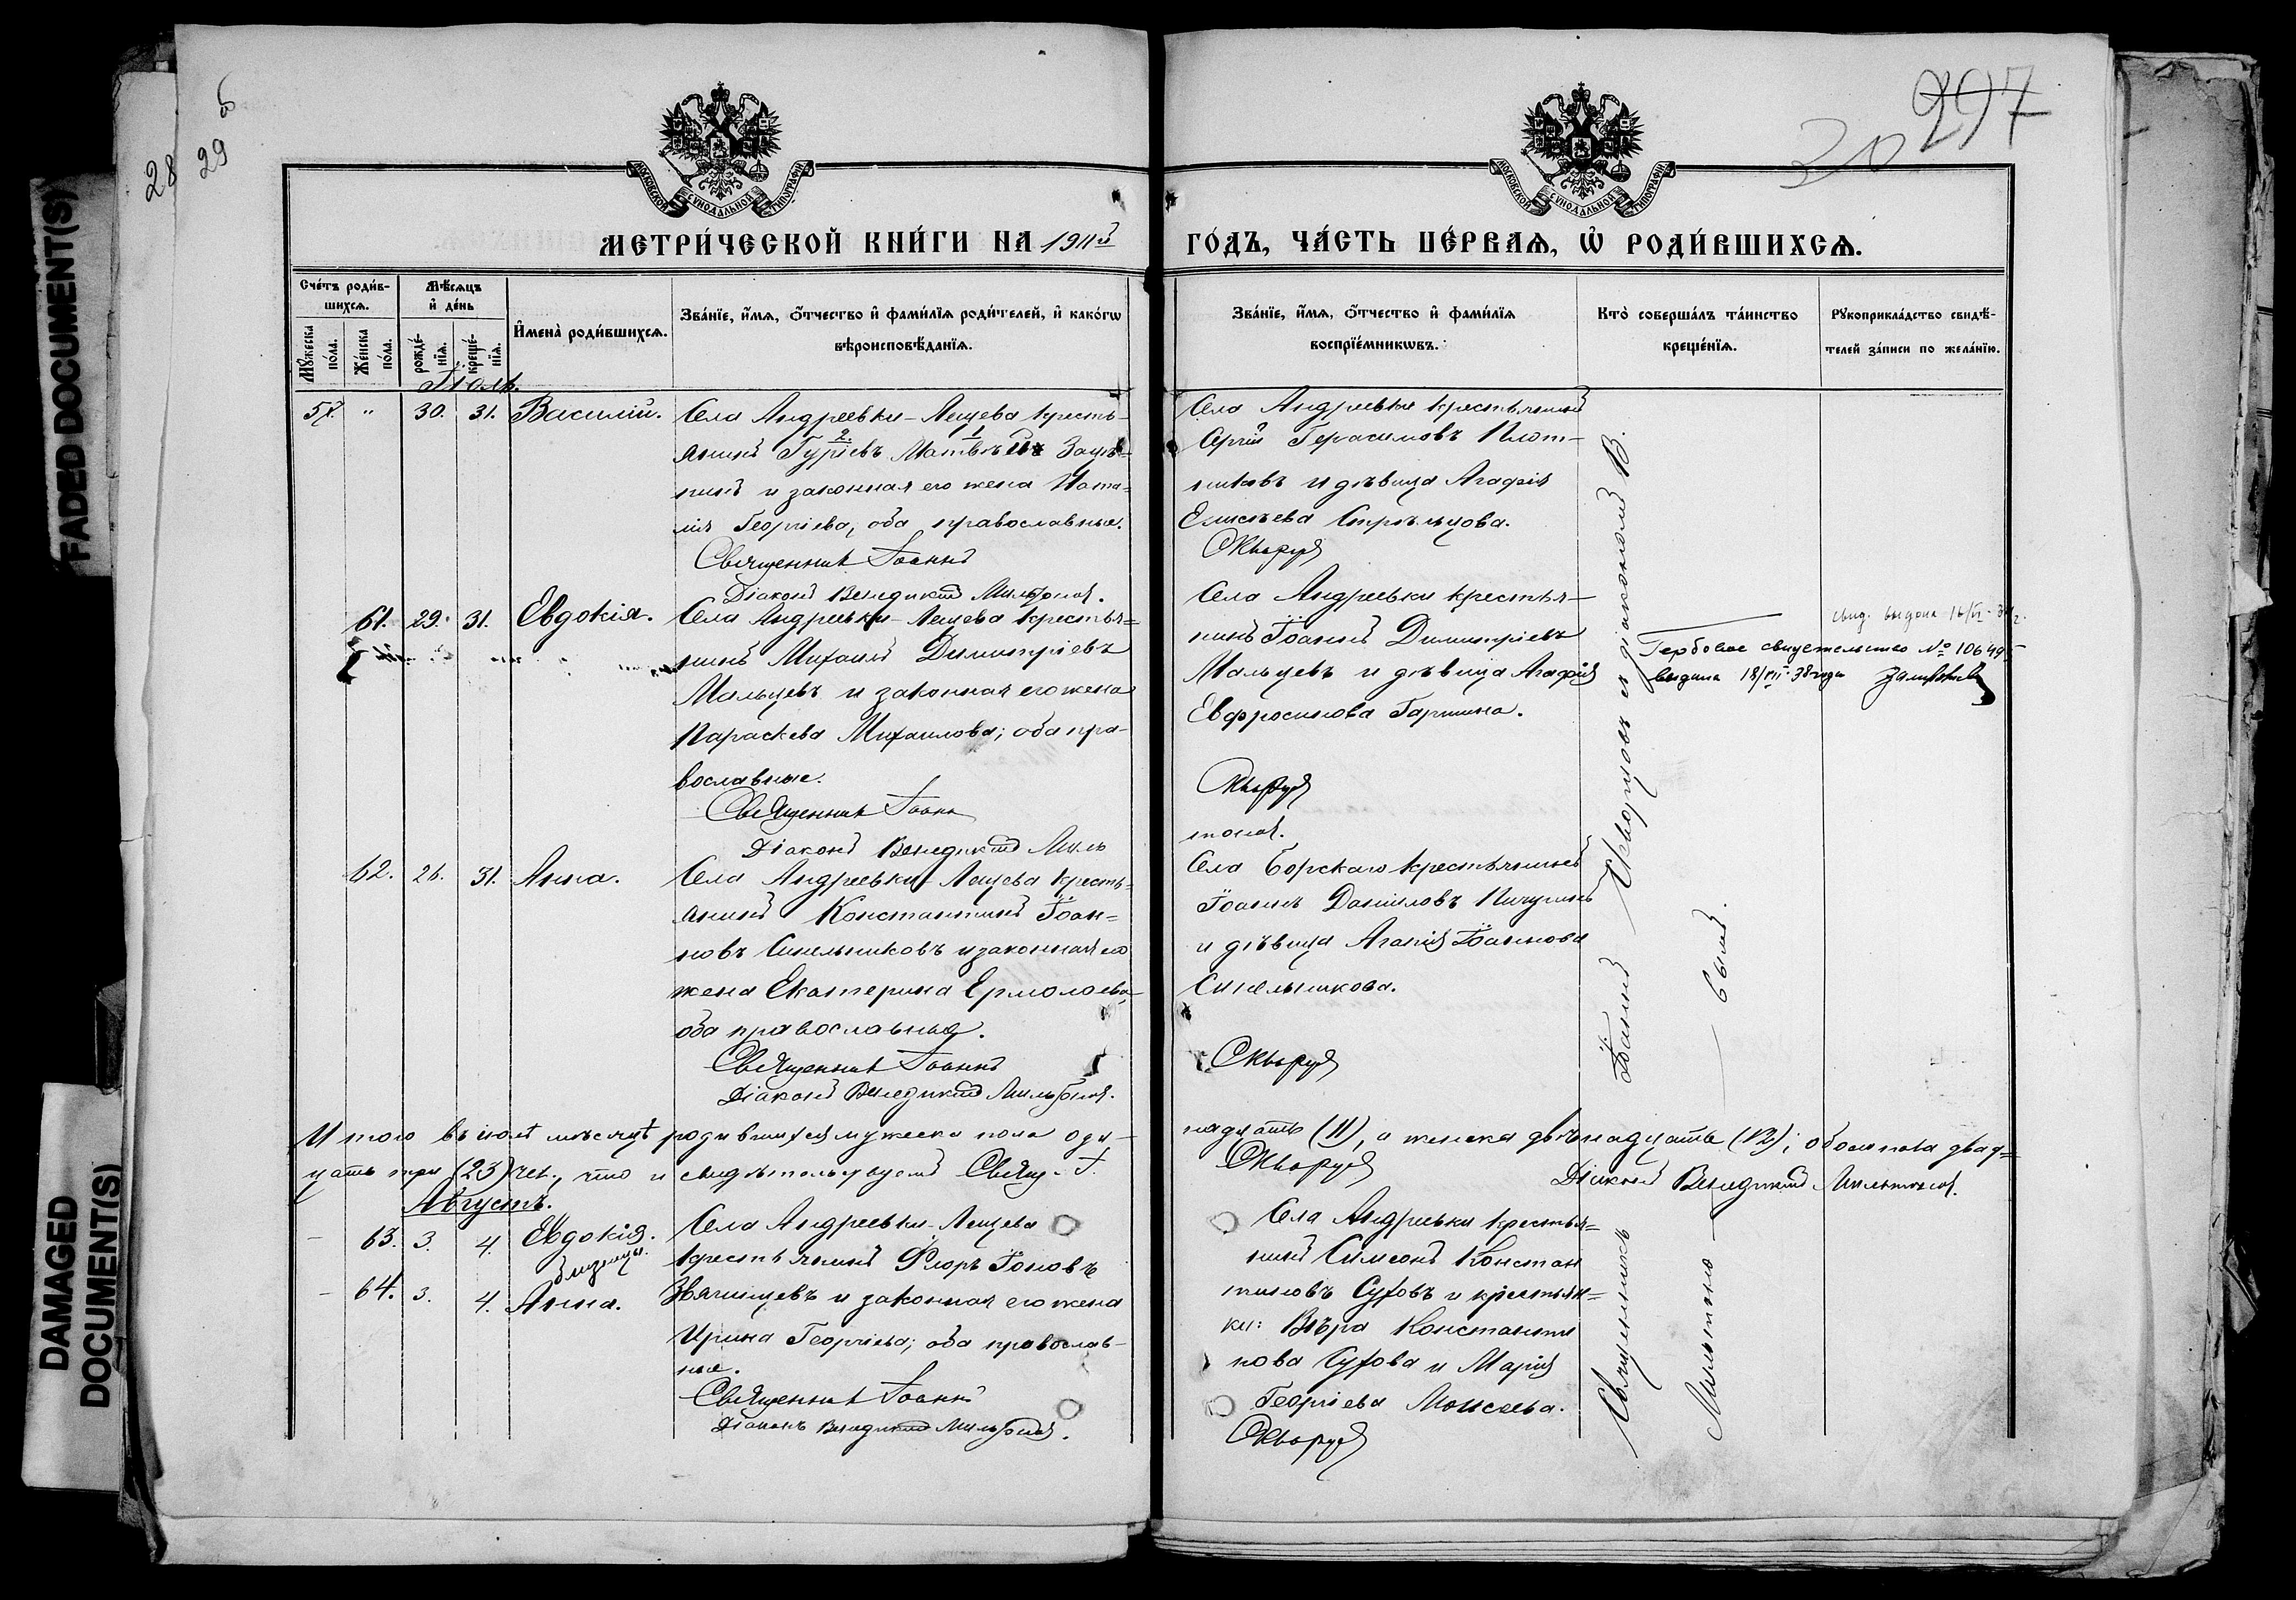 FADED DOCUMENT(S)
DAMAGED
DOCUMENT(S)
28
29
297
30
МОСКОВСКОЙ СѴНОДАЛЬНОЙ ТИПОГРАФІИ
МОСКОВСКОЙ СѴНОДАЛЬНОЙ ТИПОГРАФІИ
МЕТРИ́ЧЕСКОЙ КНИ́ГИ НА 1911й
ГО́ДЪ, ЧА́СТЬ ПЕ́РВАѦ, Ѡ҆ РОДИ́ВШИХСѦ.
Сче́тъ роди́в-
шихсѧ.
Мѹ́жеска
по́ла.
Же́нска
по́ла.
Мѣ́сѧцъ
и҆ де́нь
рожде́-
нїѧ.
креще́-
нїѧ.
И҆мена̀ роди́вшихсѧ.
Зва́нїе, и҆́мѧ, ѻ҆́тчество и҆ фами́лїѧ роди́телей, и҆ како́гѡ
вѣроисповѣ́данїѧ.
Зва́нїе, и҆́мѧ, ѻ҆́тчество и҆ фами́лїѧ
воспрїе́мникѡвъ.
Кто̀ соверша́лъ та́инство
креще́нїѧ.
Рѹкоприкла́дство свидѣ́-
телей за́писи по жела́нїю.
Іюль.
57. " 30. 31. Василій.
Села Андреевки-Лещева кресть-
янинъ Гурїевъ Матвѣй
нинъ и законная его жена Ната-
лія Георгіева, оба православные.
Священник Іоаннъ
Діаконъ Венедиктъ Мильтонов.
Села Андреевки крестьянинъ
Сергій Герасимовъ Плот-
никовъ и дѣвица Агафія
Елисѣева Стрѣльцова.
Скворцов
61. 29. 31. Евдокія.
Села Андреевки-Лещева крестья-
нинъ Михаилъ Димитріевъ
Мальцевъ и законная его жена
Параскева Михаилова; оба пра-
вославные.
Священник Іоанн
Діаконъ Венедиктъ Миль
Села Андреевки крестья-
нинъ Іоаннъ Димитріевъ
Мальцевъ и дѣвица Агафія
Евфросинова Гаршина.
Скворцов
тонов.
свид. выдана
Гербовое свидетельство №
выдана 18/VII-38 года
62. 26. 31. Анна.
Села Андреевки-Лещева кресть-
янинъ Константинъ Іоан-
новъ Синельниковъ и законная его
жена Екатерина Ермолаева,
оба православныя.
Священник Іоаннъ
Діаконъ Венедиктъ Мильтонов.
Села Борскаго крестьянинъ
Іоаннъ Даніиловъ Пичугинъ
и дѣвица Агапія Іоаннова
Синельникова.
Скворцов
Итого въ іюлѣ мѣсяцѣ родившихся мужеска пола оди-
надцать (11), а женска двѣнадцать (12); обоего пола двад-
цать три (23) чел., что и свидѣтельствуемъ Свящ. І.
Скворцов
Діаконъ Венедиктъ Мильтонов.
Августъ.
- 63. 3. 4. Евдокія.
близнецы.
- 64. 3. 4. Анна.
Села Андреевки-Лещева
крестьянинъ Флоръ Іоновъ
Звягинцевъ и законная его жена
Ирина Георгіева; оба православ-
ные.
Священник Іоаннъ
Діаконъ Венедиктъ Мильтонов.
Села Андреевки крестья-
нинъ Симеонъ Констан
тиновъ Суховъ и крестьян-
ки: Вѣра Константи
нова Сухова и Марія
Георгіева Моисеева.
Скворцов
Священникъ Іоаннъ Скворцовъ съ діакономъ В.
Мильтоно — вымъ.